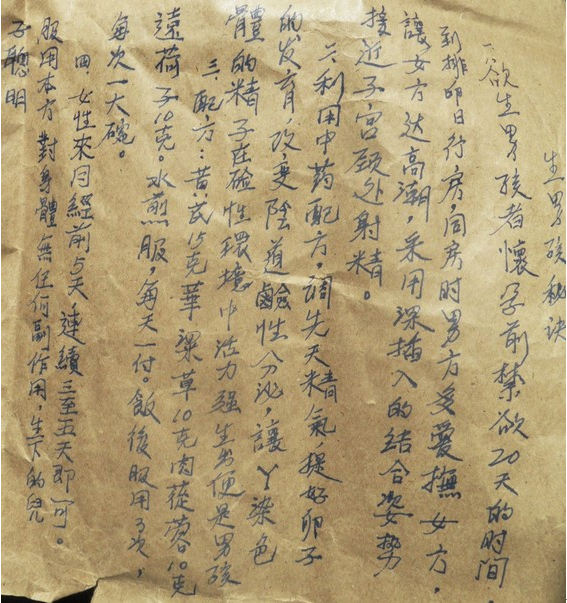 生男孩秘诀
一、欲生男孩者懷孕前禁欲20天的时间，
到排卵日行房，同房时男方多愛撫女方，
讓女方达高潮，采用深插入的结合姿势
接近子宫颈处射精。
二、利用中药配方，调先天精氣，提好卵子
的发育，改变陰道鹼性分泌，讓丫染色
體的精子在硷性環境中活力强生出便是男孩
三、配方：黄芪15克華 草10克肉蓯蓉10克
遠荷子10克。水煎服，每天一付。飯後服用3次，
每次一大碗。
四、女性來月經前5天，連續三至五天即可。
服用本方對身體無任何副作用，生下的兒
子聰明